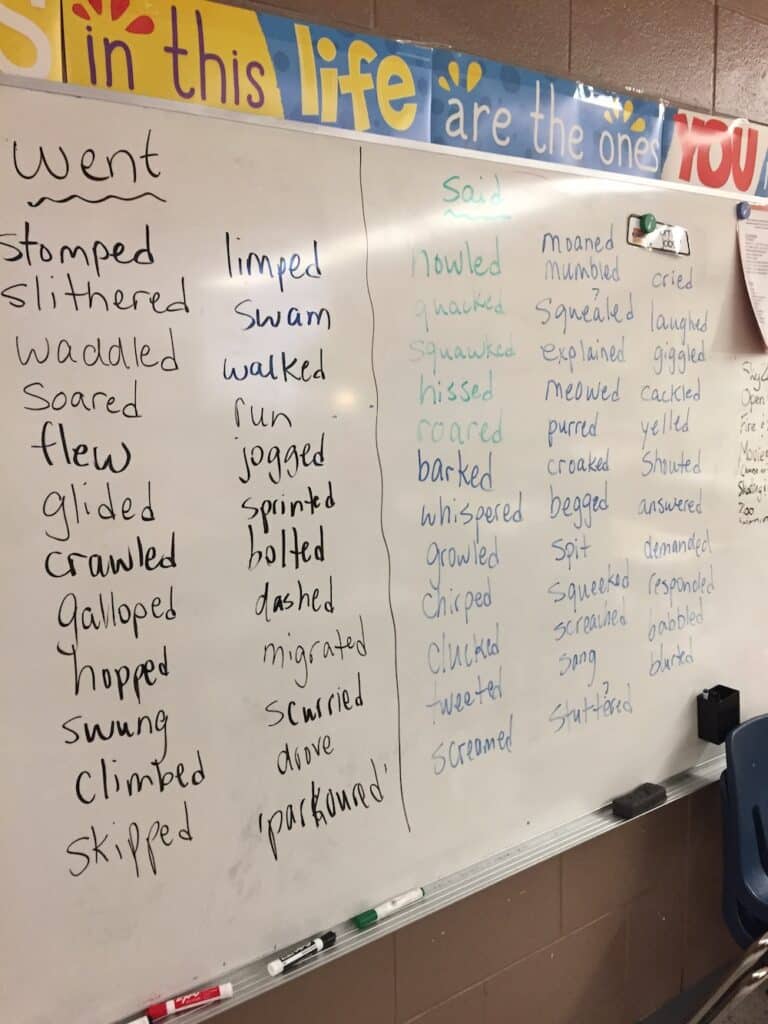 s in this life are the ones YOU
went
stomped
slithered
waddled
soared
flew
glided
crawled
galloped
hopped
swung
climbed
skipped
limped
swam
walked
run
jogged
sprinted
bolted
dashed
migrated
scurried
drove
'parkoured'
said
howled
quacked
squawked
hissed
roared
barked
whispered
growled
chirped
clucked
tweeted
screamed
moaned
mumbled
?
squealed
explained
meowed
purred
croaked
begged
spit
squeeked
screached
sang
?
stuttered
cried
laughed
giggled
cackled
yelled
shouted
answered
demanded
responded
babbled
blurted
Open
Fire
Zoo